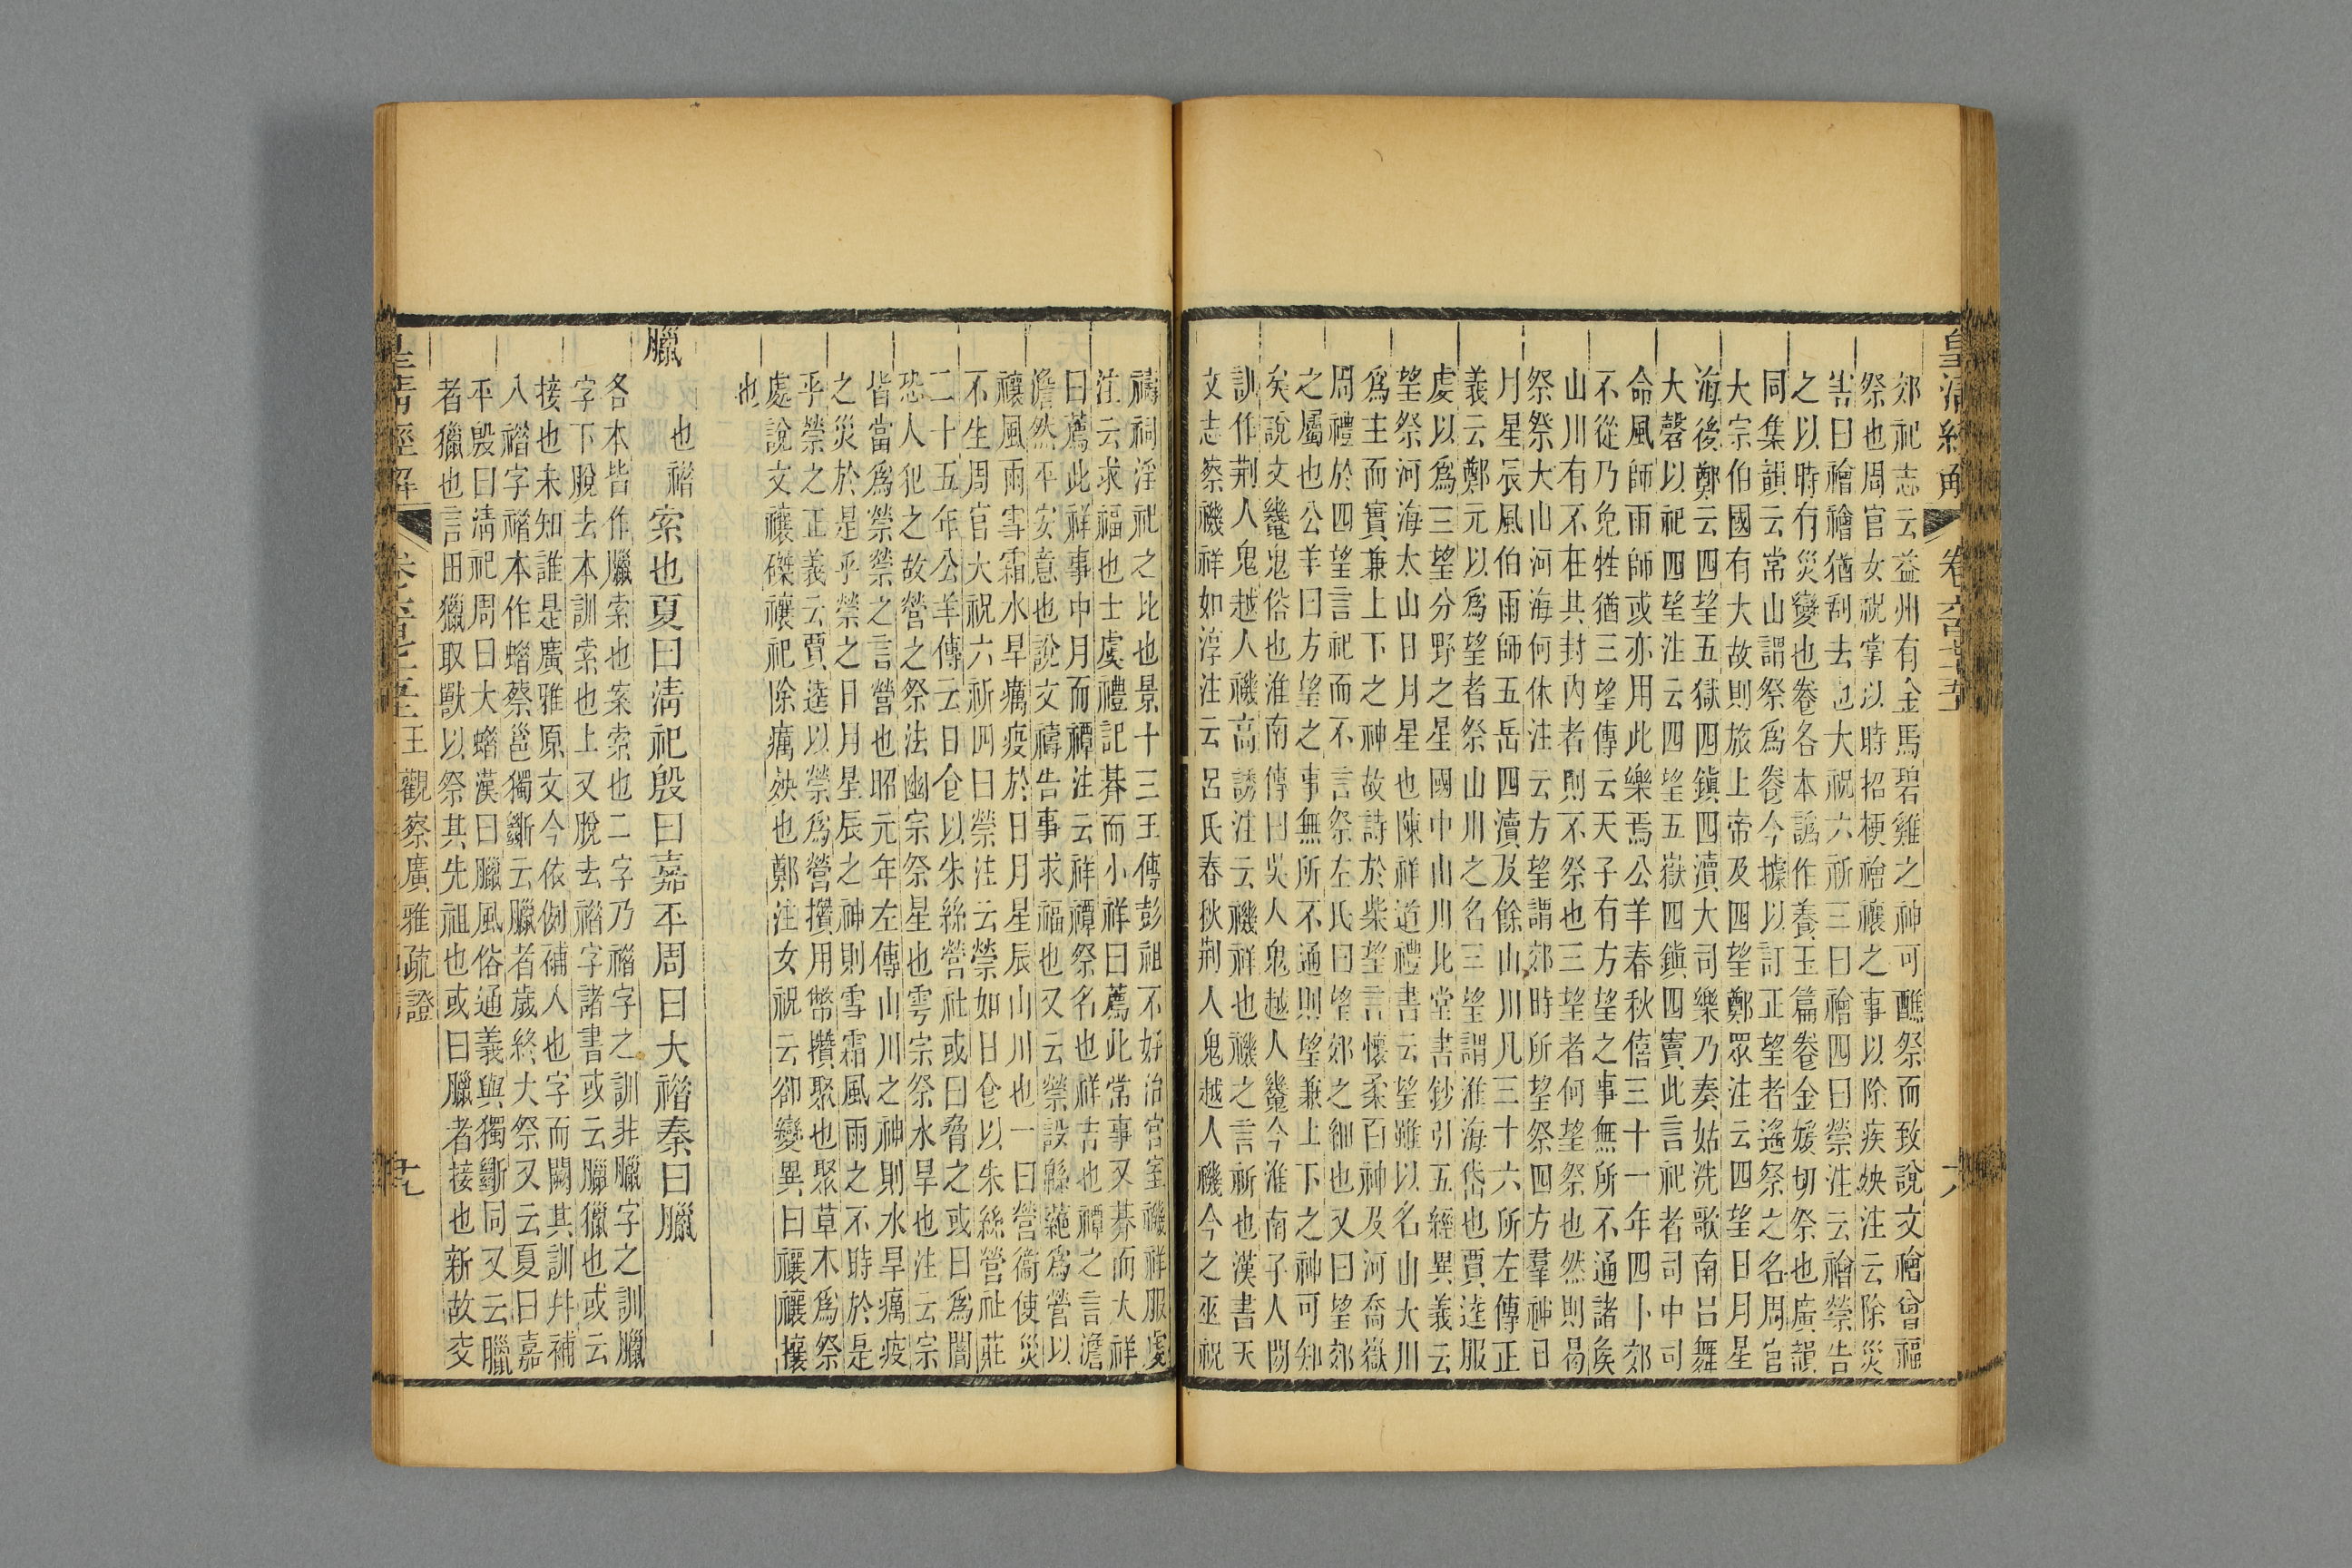 皇清經解 卷六百七十五 十八
郊祀志云益州有金馬碧雞之神可醮祭而致說文禬會福
祭也周官女祝掌以時招梗禬禳之事以除疾殃注云除災
害曰禬禬猶刮去也大祝六祈三曰禬四曰禜注云禬禜告
之以時有災變也𥙊各本譌作養玉篇𥙊金媛切祭也廣韻
同集韻云常山謂祭爲𥙊今據以訂正望者遙祭之名周官
大宗伯國有大故則旅上帝及四望鄭眾注云四望日月星
海後鄭云四望五嶽四鎭四瀆大司樂乃奏姑洗歌南呂舞
大磬以祀四望注云四望五嶽四鎭四竇此言祀者司中司
命風師雨師或亦用此樂焉公羊春秋僖三十一年四卜郊
不從乃免牲猶三望傳云天子有方望之事無所不通諸矦
山川有不在其封內者則不祭也三望者何望祭也然則曷
祭祭大山河海何休注云方望謂郊時所望祭四方羣神日
月星辰風伯雨師五岳四瀆及餘山川凡三十六所左傳正
義云鄭元以爲望者祭山川之名三望謂淮海岱也賈逵服
虔以爲三望分野之星國中山川北堂書鈔引五經異義云
望祭河海太山日月星也陳祥道禮書云望雖以名山大川
爲主而實兼上下之神故詩於柴望言懷柔百神及河喬嶽
周禮於四望言祀而不言祭左氏曰望郊之細也又曰望郊
之屬也公羊曰方望之事無所不通則望兼上下之神可知
矣說文鬾鬼俗也淮南傳曰吳人鬼越人鬾今淮南子人閒
訓作荆人鬼越人禨高誘注云禨祥也禨之言祈也漢書天
文志察禨祥如淳注云呂氏春秋荆人鬼越人禨今之巫祝
禱祠淫祀之比也景十三王傳彭祖不好治宮室禨祥服虔
注云求福也士虞禮記朞而小祥曰薦此常事又朞而大祥
曰薦此祥事中月而禫注云祥禫祭名也祥吉也禫之言澹
澹然平安意也說文禱告事求福也又云禜設緜蕝爲營以
禳風雨雪霜水旱癘疫於日月星辰山川也一曰禜衞使災
不生周官大祝六祈四曰禜注云禜如日食以朱絲營社莊
二十五年公羊傳云日食以朱絲營社或曰脅之或曰爲闇
恐人犯之故營之祭法幽宗祭星也雩宗祭水旱也注云宗
皆當爲禜禜之言營也昭元年左傳山川之神則水旱癘疫
之災於是乎禜之日月星辰之神則雪霜風雨之不時於是
乎禜之正義云賈逵以禜爲營攢用幣攢聚也聚草木爲祭
處說文禳磔禳祀除癘殃也鄭注女祝云卻變異曰禳禳攘
也
臘
也䄍索也夏曰淸祀殷曰嘉平周曰大䄍秦曰臘
各本皆作臘索也案索也二字乃䄍字之訓非臘字之訓臘
字下脫去本訓索也上又脫去䄍字諸書或云臘獵也或云
接也未知誰是廣雅原文今依例補入也字而闕其訓并補
入䄍字䄍本作蜡蔡邕獨斷云臘者歲終大祭又云夏曰嘉
平殷曰淸祀周曰大蜡漢曰臘風俗通義與獨斷同又云臘
者獵也言田獵取獸以祭其先祖也或曰臘者接也新故交
皇清經解 卷六百七十五 王觀察廣雅疏證 十九